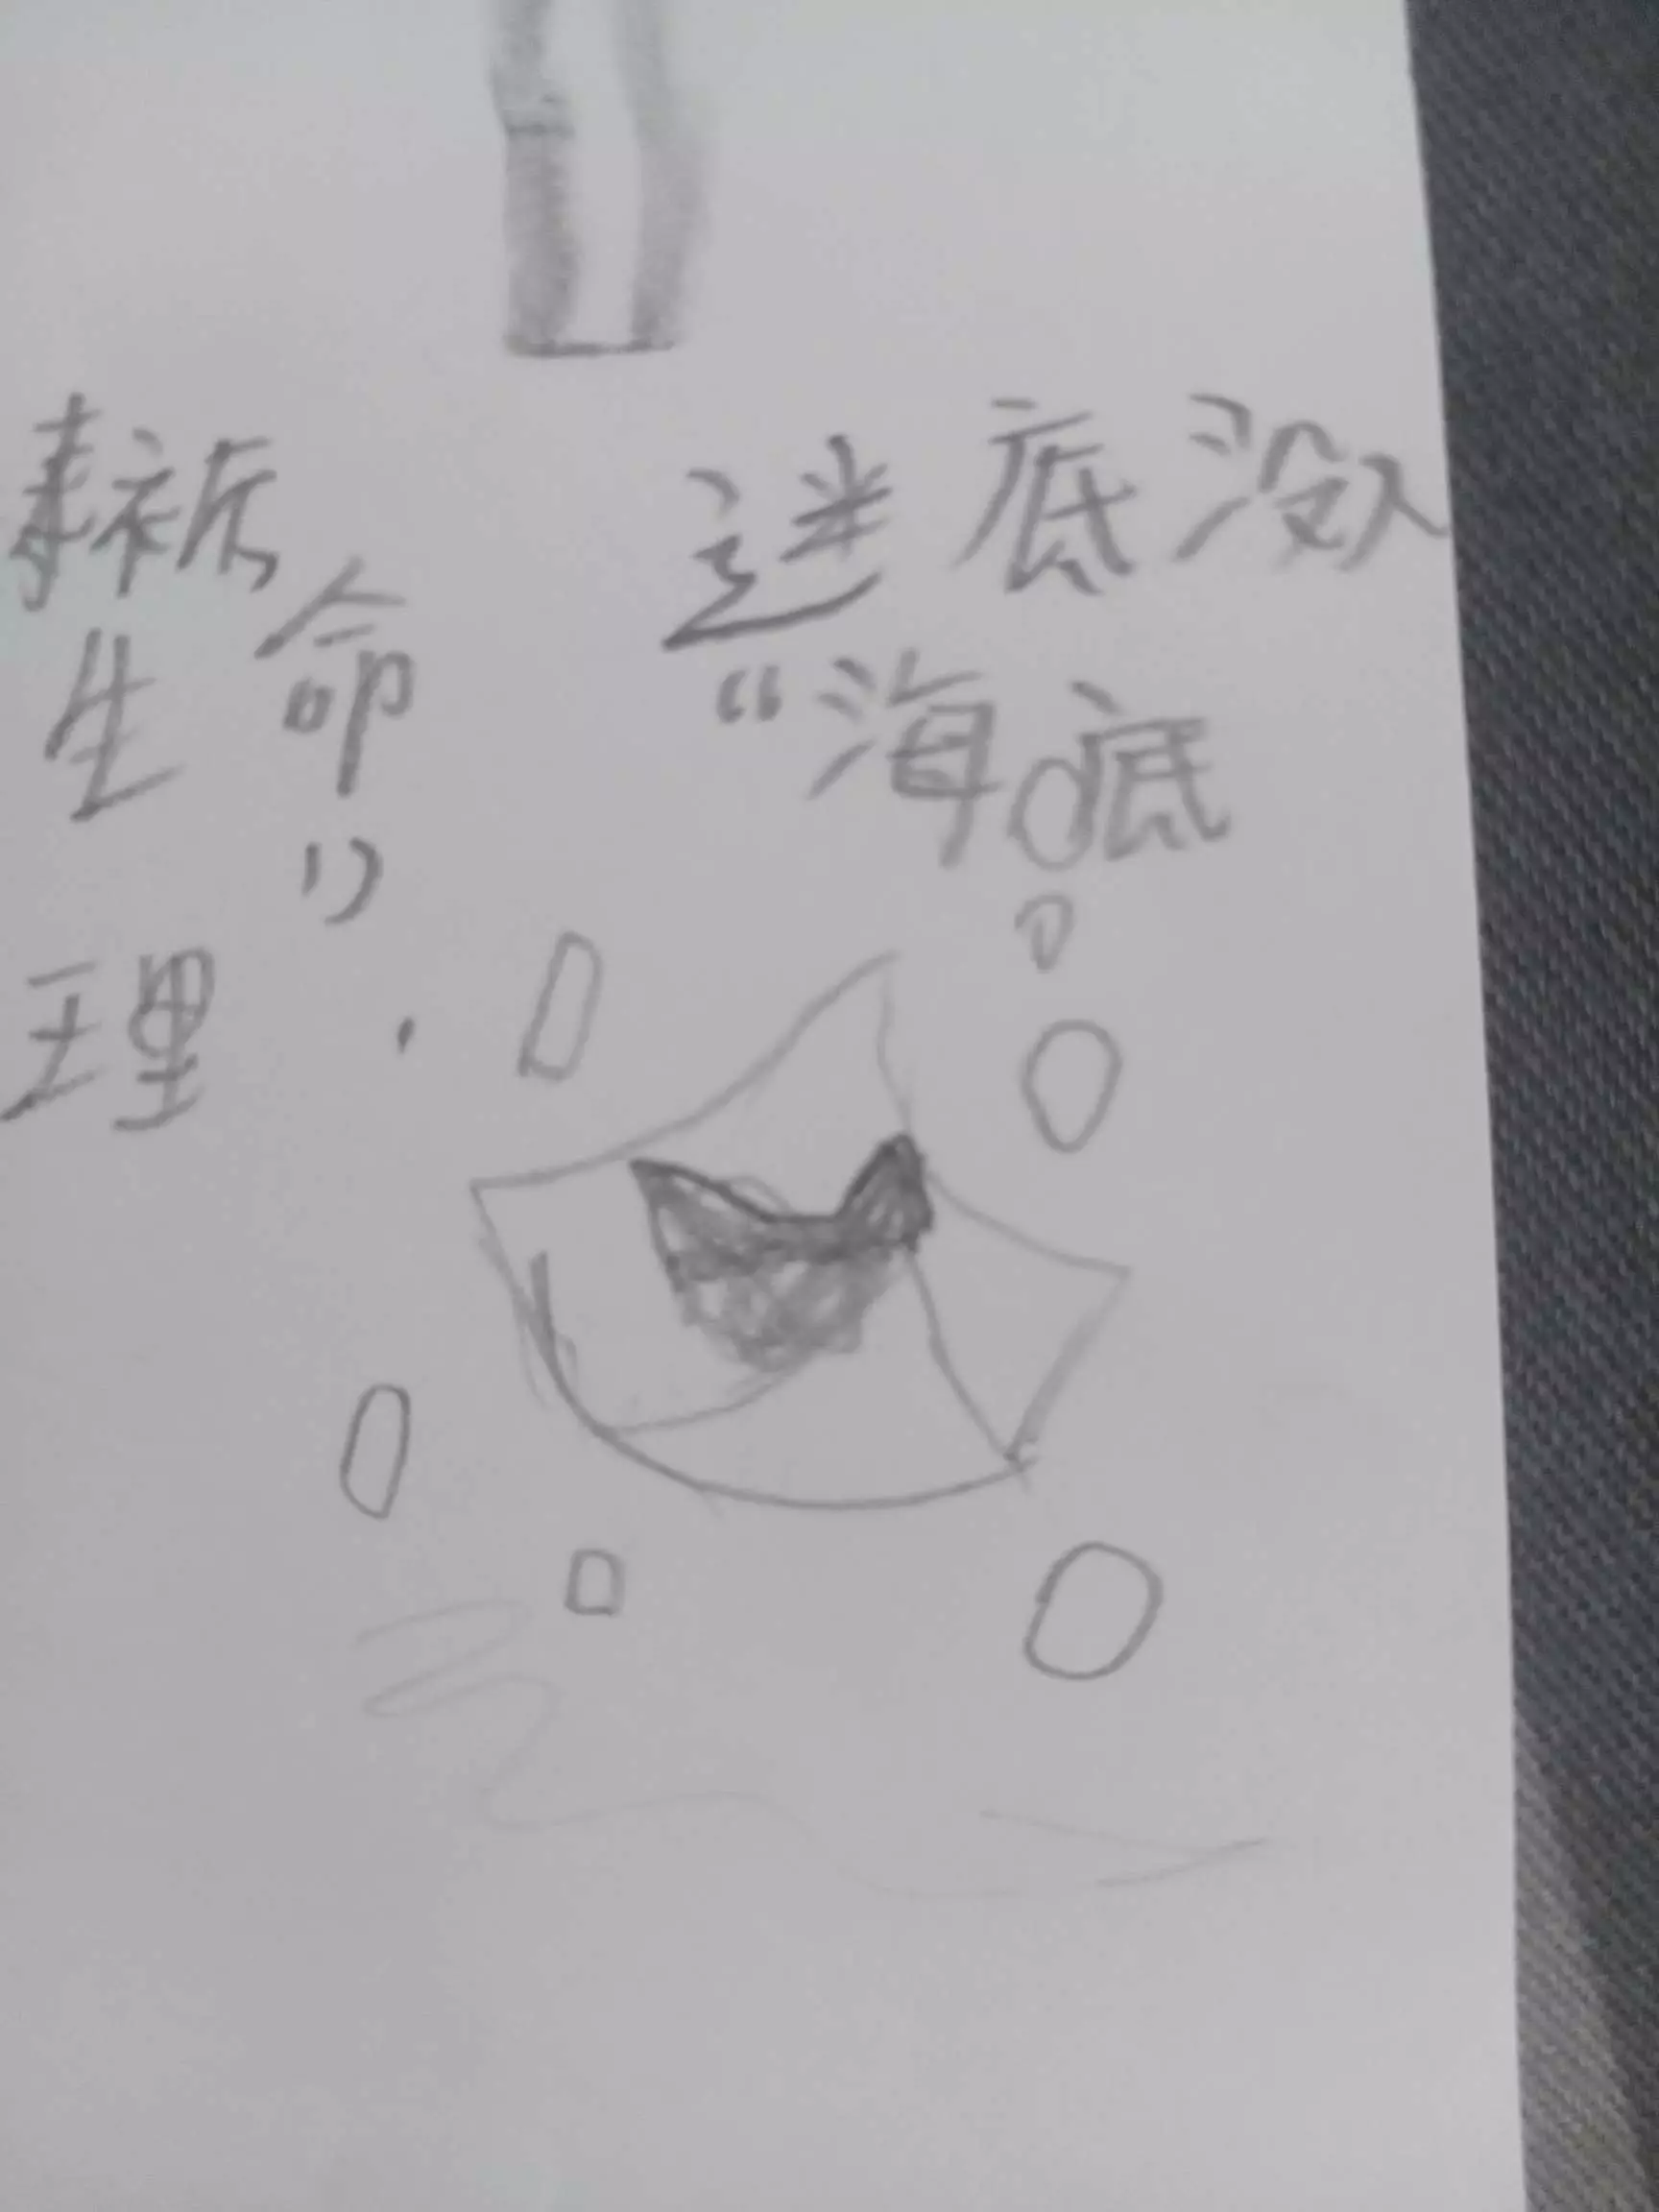 迷底没入
“海底
生命”
理.